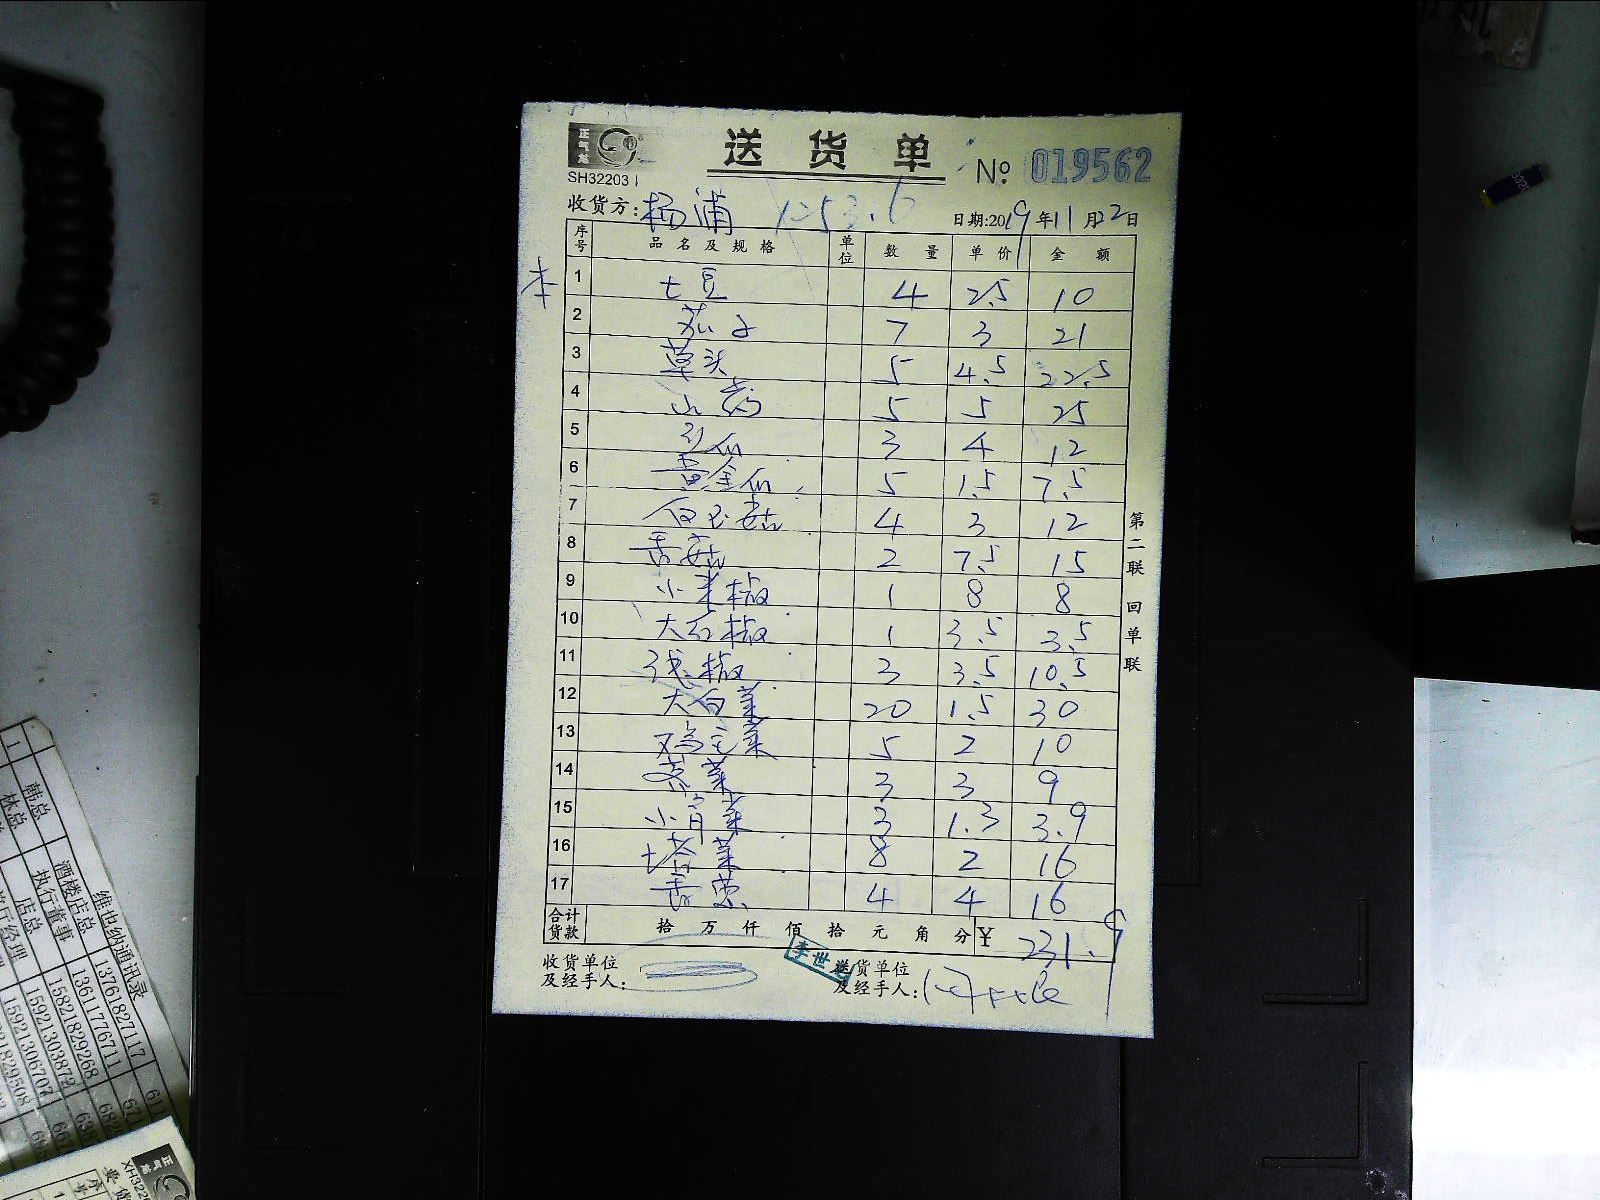 正气龙
SH322031
送货单
№ 019562
收货方: 杨浦 1253.6
日期:2019年11月22日
序号 品名及规格 单位 数量 单价 金额
本
1 土豆 4 2.5 10
2 茄子 7 3 21
3 草头 5 4.5 22.5
4 山药 5 5 25
5 引瓜 3 4 12
6 黄金瓜 5 1.5 7.5
7 白玉菇 4 3 12
8 香菇 2 7.5 15
9 小米椒 1 8 8
10 大红椒 1 3.5 3.5
11 浅椒 3 3.5 10.5
12 大白菜 20 1.5 30
13 鸡毛菜 5 2 10
14 菜 3 3 9
15 小青菜 3 1.3 3.9
16 塔菜 8 2 16
17 香菜 4 4 16
合计货款 拾 万 仟 佰 拾 元 角 分 ¥ 231.9
收货单位及经手人:
李世
送货单位及经手人:
第二联 回单联
维也纳通讯录
韩总 酒楼店总 13761827117
林总 执行董事 13611776711
店总 15821829268
15921303872
15921306707
正气龙